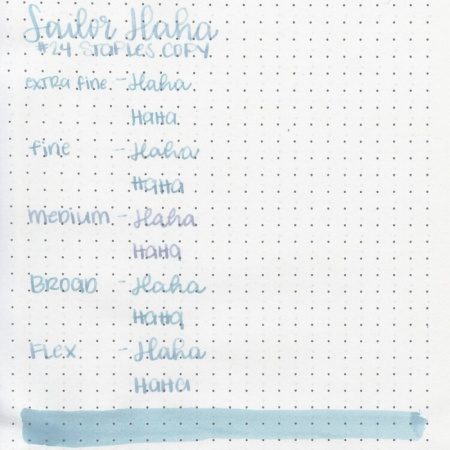 Sailor Haha
#24 STAPLES COPY
extra fine - Haha
HaHa
fine - Haha
HaHa
Medium - Haha
HaHa
Broad - Haha
HaHa
Flex - Haha
HaHa